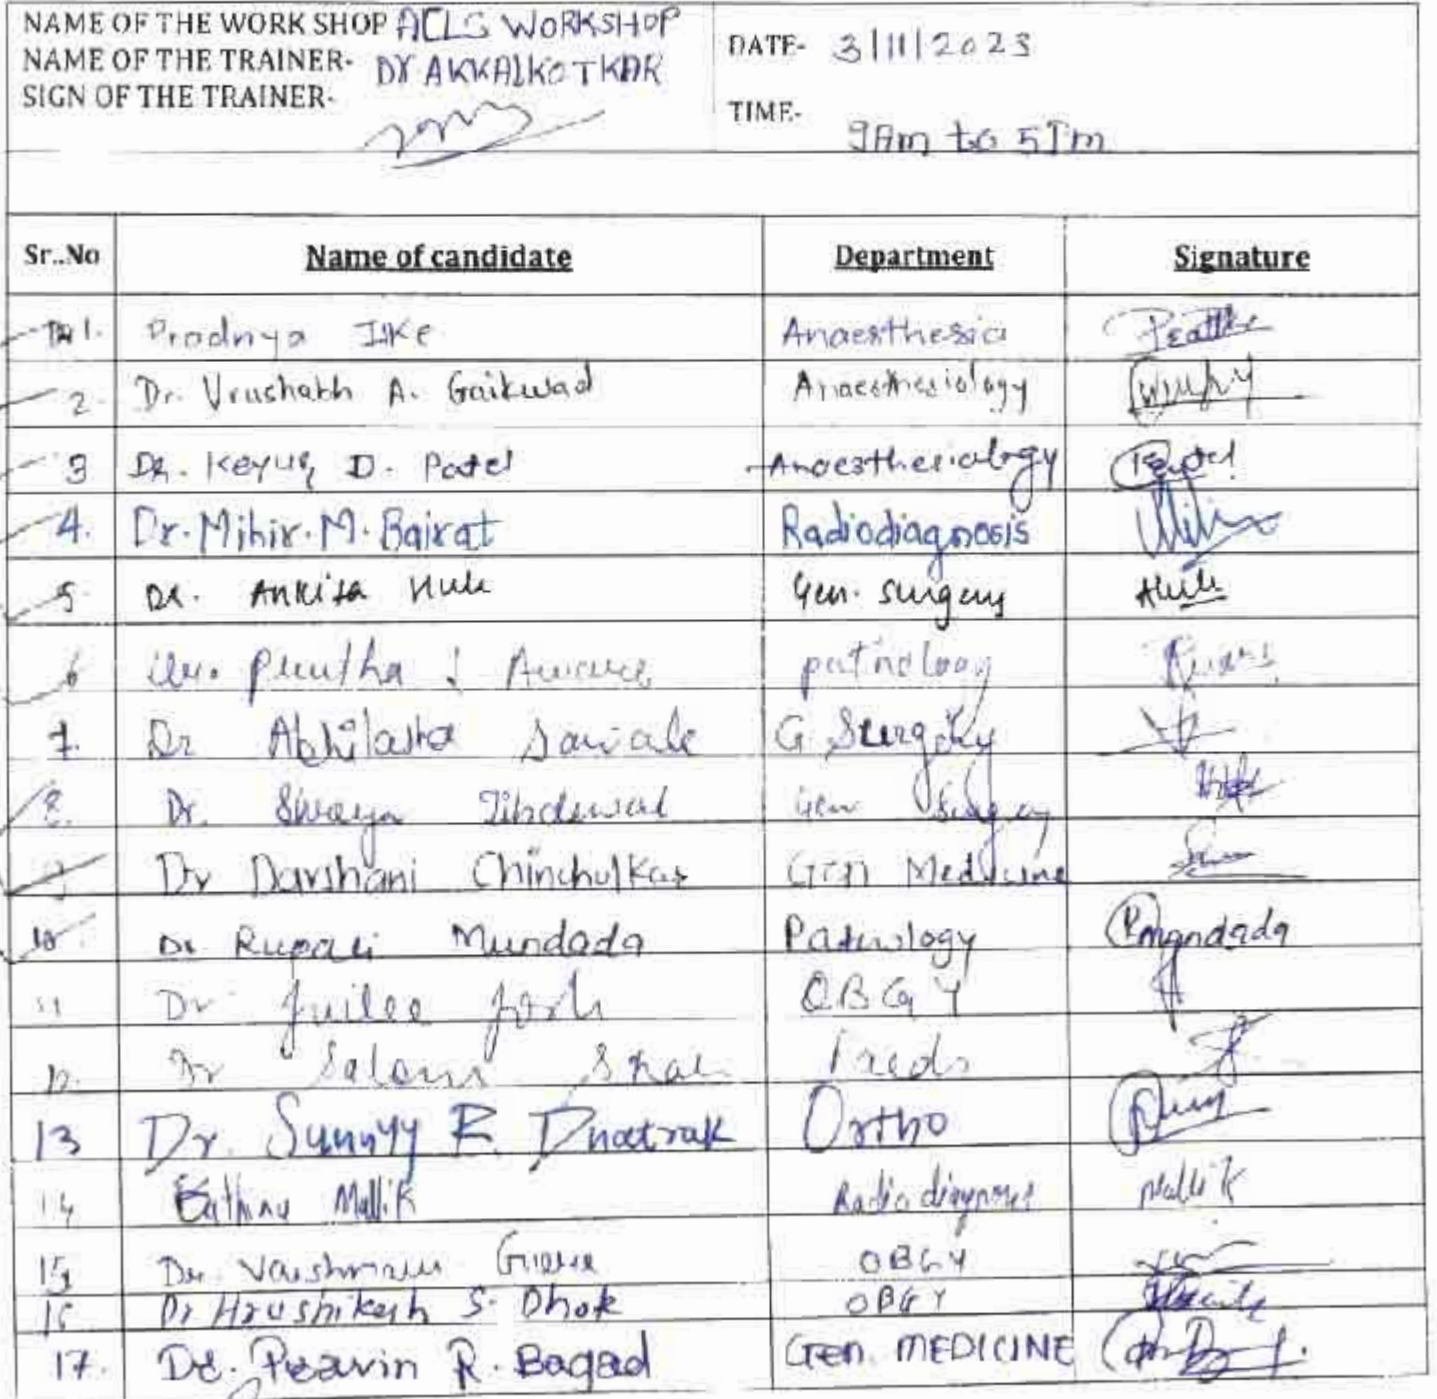 NAME OF THE WORK SHOP ACLS WORKSHOP
NAME OF THE TRAINER- Dr AKKALKOTKAR
SIGN OF THE TRAINER-
DATE- 3/11/2023
TIME- 9Am to 5Pm
Sr..No Name of candidate Department Signature
1. Pradnya Ike Anaesthesia
2. Dr. Vrushabh A. Gaikwad Anaesthesiology
3 DR. Keyur D. Patel Anaesthesiology
4. Dr. Mihir. M. Bairat Radiodiagnosis
5 DR. Ankita Hule Gen. surgery Hule
6 Dr. pathology
7. Dr Abhilasha Sawale G. Surgery
8. Dr. Gen Surgery
9 Dr Darshani Chinchulkar Gen Medicine
10 Dr Rupali Mundada Pathology Rmundada
11 Dr Juilee Joshi OBGY
12. Dr Saloni Peds
13 Dr. Sunnyy R. Dhatrak Ortho
14 Mallik Radiodiagnosis Mallik
15 Dr. OBGY
16 Dr Hrushikesh S. Dhok OBGY
17. Dr. Pravin R. Bagad Gen. MEDICINE